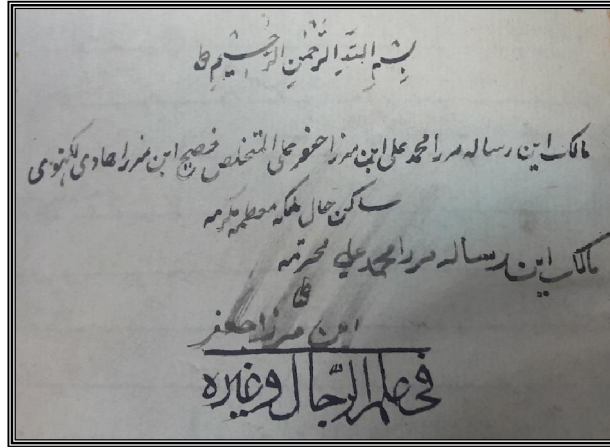 بِسْمِ اللهِ الرَّحْمٰنِ الرَّحِيْمِ
مالک این رساله مرزا محمد علی ابن مرزا جعفر علی المتخلص فصیح ابن مرزا هادی لکهنوی
ساکن حال مکه معظمه مکرمه
مالک این رساله مرزا محمد علی
ابن مرزا جعفر
فی علم الرّجال وغیره